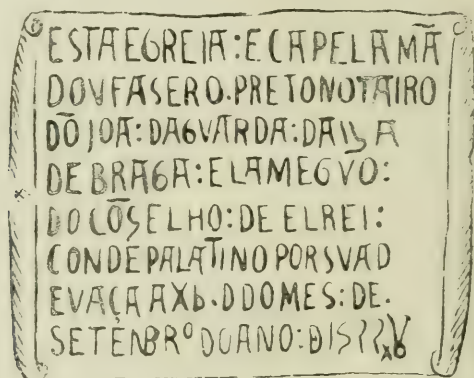 ESTA EGREIA : E CAPELA MÃ
DOU FASER O . PRETONOTAIRO
DÕ JOA : DA GVARDA : DAIAM
DE BRAGA : E LAMEGVO :
DO CÕSELHO : DE EL REI :
CONDE PALATINO POR SVA D
EVAÇA A Xb . D DO MES : DE .
SETENBRº DO ANO :